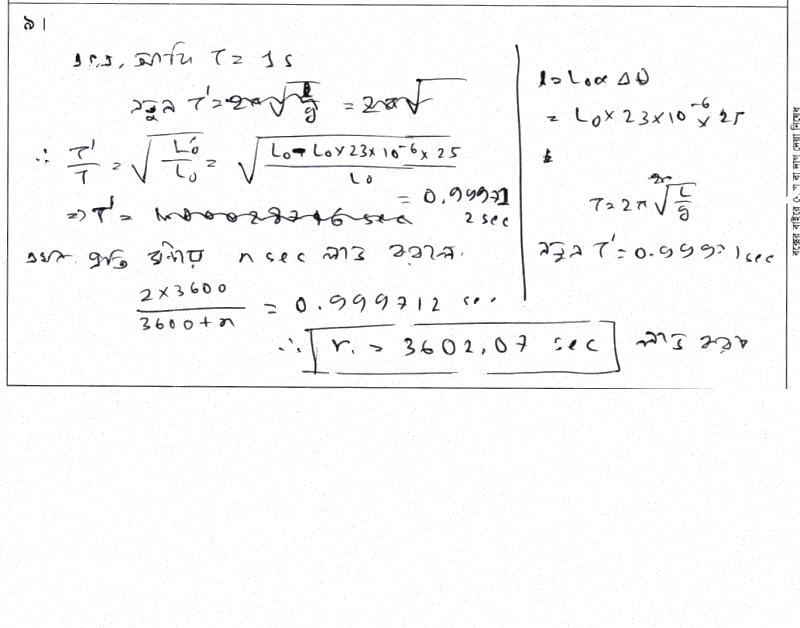 ৯।
আদি T = 1s
নতুন T' = 2π√(L/g) = 2π√
∴ T'/T = √(L₀'/L₀) = √((L₀ - L₀×23×10⁻⁶×25)/L₀)
= 0.99971
⇒ T' = 2 sec
প্রতি ঘন্টায় n sec লাভ করলে.
(2×3600)/(3600+n) = 0.999712 sec
∴ n = 3602.07 sec লাভ করবে
l = L₀α Δθ
= L₀ × 23×10⁻⁶ × 25
T = 2π√(L/g)
নতুন T' = 0.99971 sec
বক্সের বাইরে কোন দাগ দেয়া নিষেধ